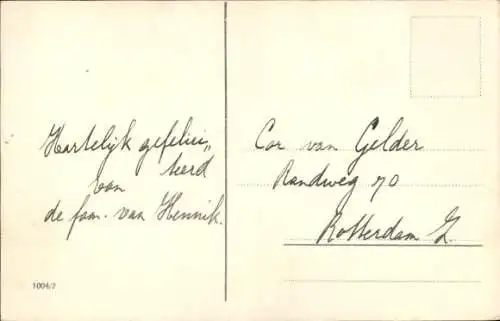 Hartelijk gefelici„
teerd
van
de fam. van Hennik.
1004/2
Cor van Gelder
Randweg 70
Rotterdam Z.